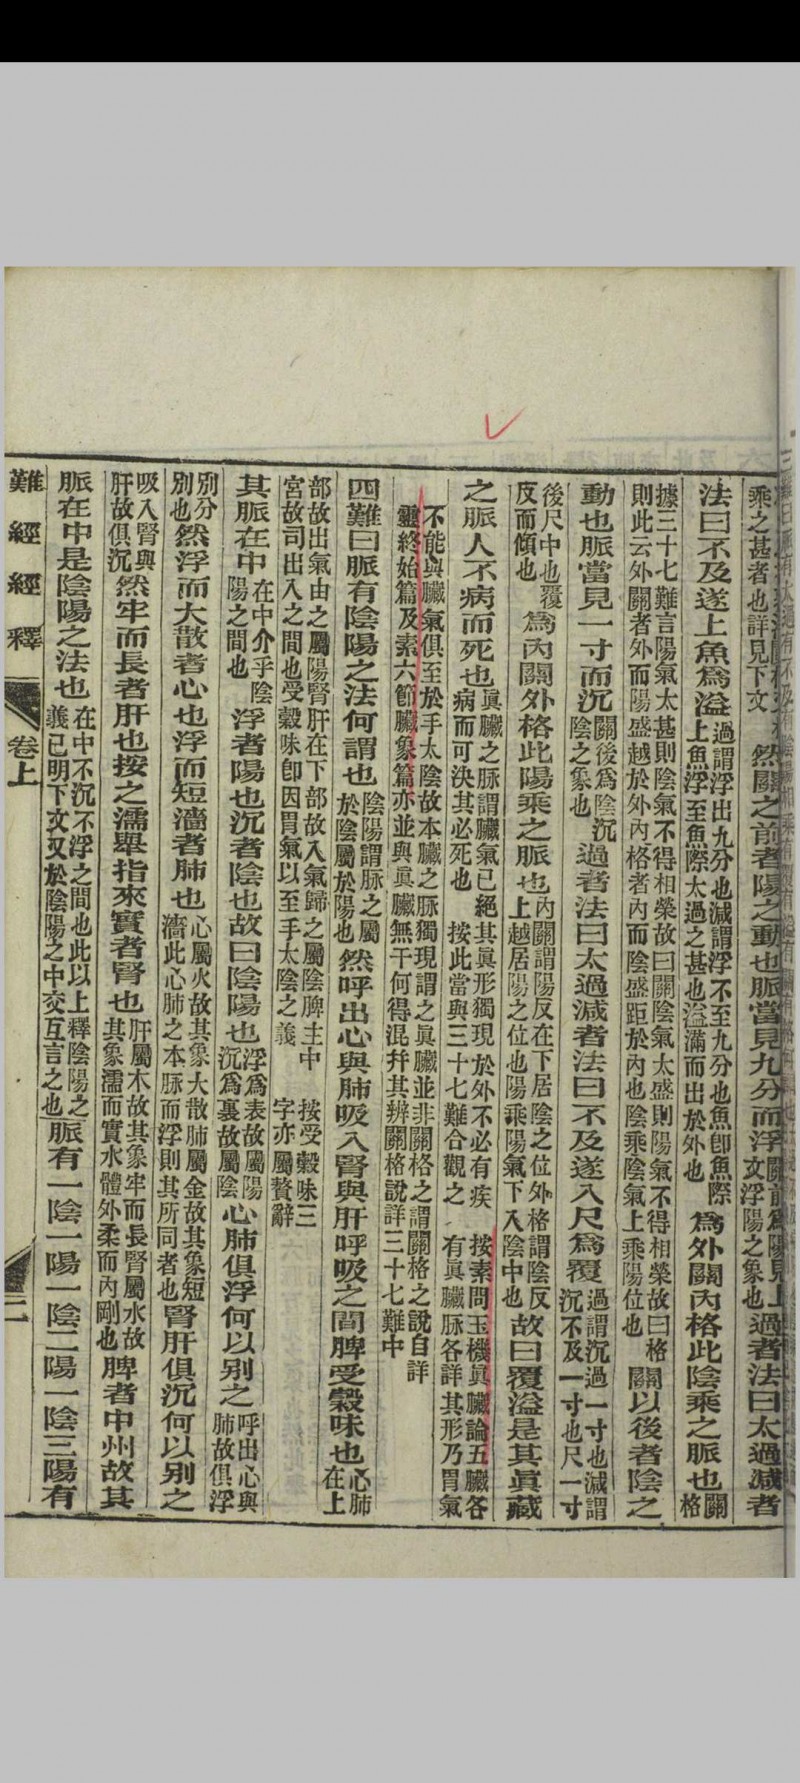 乘之甚者也詳見下文
然關之前者陽之動也脈當見九分而浮
關前爲陽見上文浮陽之象也
過者法曰太過減者
法曰不及遂上魚爲溢
過謂浮出九分也減謂浮不至九分也魚卽魚際
上魚浮至魚際太過之甚也溢滿而出於外也
爲外關內格此陰乘之脈也
關格
據三十七難言陽氣太甚則陰氣不得相榮故曰關陰氣太盛則陽氣不得相榮故曰格
則此云外關者外而陽盛越於外內格者內而陰盛距於內也陰乘陰氣上乘陽位也
關以後者陰之
動也脈當見一寸而沉
關後爲陰沉
陰之象也
過者法曰太過減者法曰不及遂入尺爲覆
過謂沉過一寸也減謂
沉不及一寸也尺一寸
後尺中也覆
反而傾也
爲內關外格此陽乘之脈也
內關謂陽反在下居陰之位外格謂陰反
上越居陽之位也陽乘陽氣下入陰中也
故曰覆溢是其眞藏
之脈人不病而死也
眞臟之脈謂臟氣已絕其眞形獨現於外不必有疾
病而可決其必死也 按此當與三十七難合觀之
按素問玉機眞臟論五臟各
有眞臟脈各詳其形乃胃氣
不能與臟氣俱至於手太陰故本臟之脈獨現謂之眞臟並非關格之謂關格之說自詳
靈終始篇及素六節臟象篇亦並與眞臟無干何得混幷其辨關格說詳三十七難中
四難曰脈有陰陽之法何謂也
陰陽謂脈之屬
於陰屬於陽也
然呼出心與肺吸入腎與肝呼吸之間脾受穀味也
心肺
在上
部故出氣由之屬陽腎肝在下部故入氣歸之屬陰脾主中
宮故司出入之間也受穀味卽因胃氣以至手太陰之義
按受穀味三
字亦屬贅辭
其脈在中
在中介乎陰
陽之間也
浮者陽也沉者陰也故曰陰陽也
浮爲表故屬陽
沉爲裏故屬陰
心肺俱浮何以別之
呼出心與
肺故俱浮
別分
別也
然浮而大散者心也浮而短濇者肺也
心屬火故其象大散肺屬金故其象短
濇此心肺之本脈而浮則其所同者也
腎肝俱沉何以別之
吸入腎與
肝故俱沉
然牢而長者肝也按之濡舉指來實者腎也
肝屬木故其象牢而長腎屬水故
其象濡而實水體外柔而內剛也
脾者中州故其
脈在中是陰陽之法也
在中不沉不浮之間也此以上釋陰陽之
義已明下文又於陰陽之中交互言之也
脈有一陰一陽一陰二陽一陰三陽有
難經經釋 卷上 二